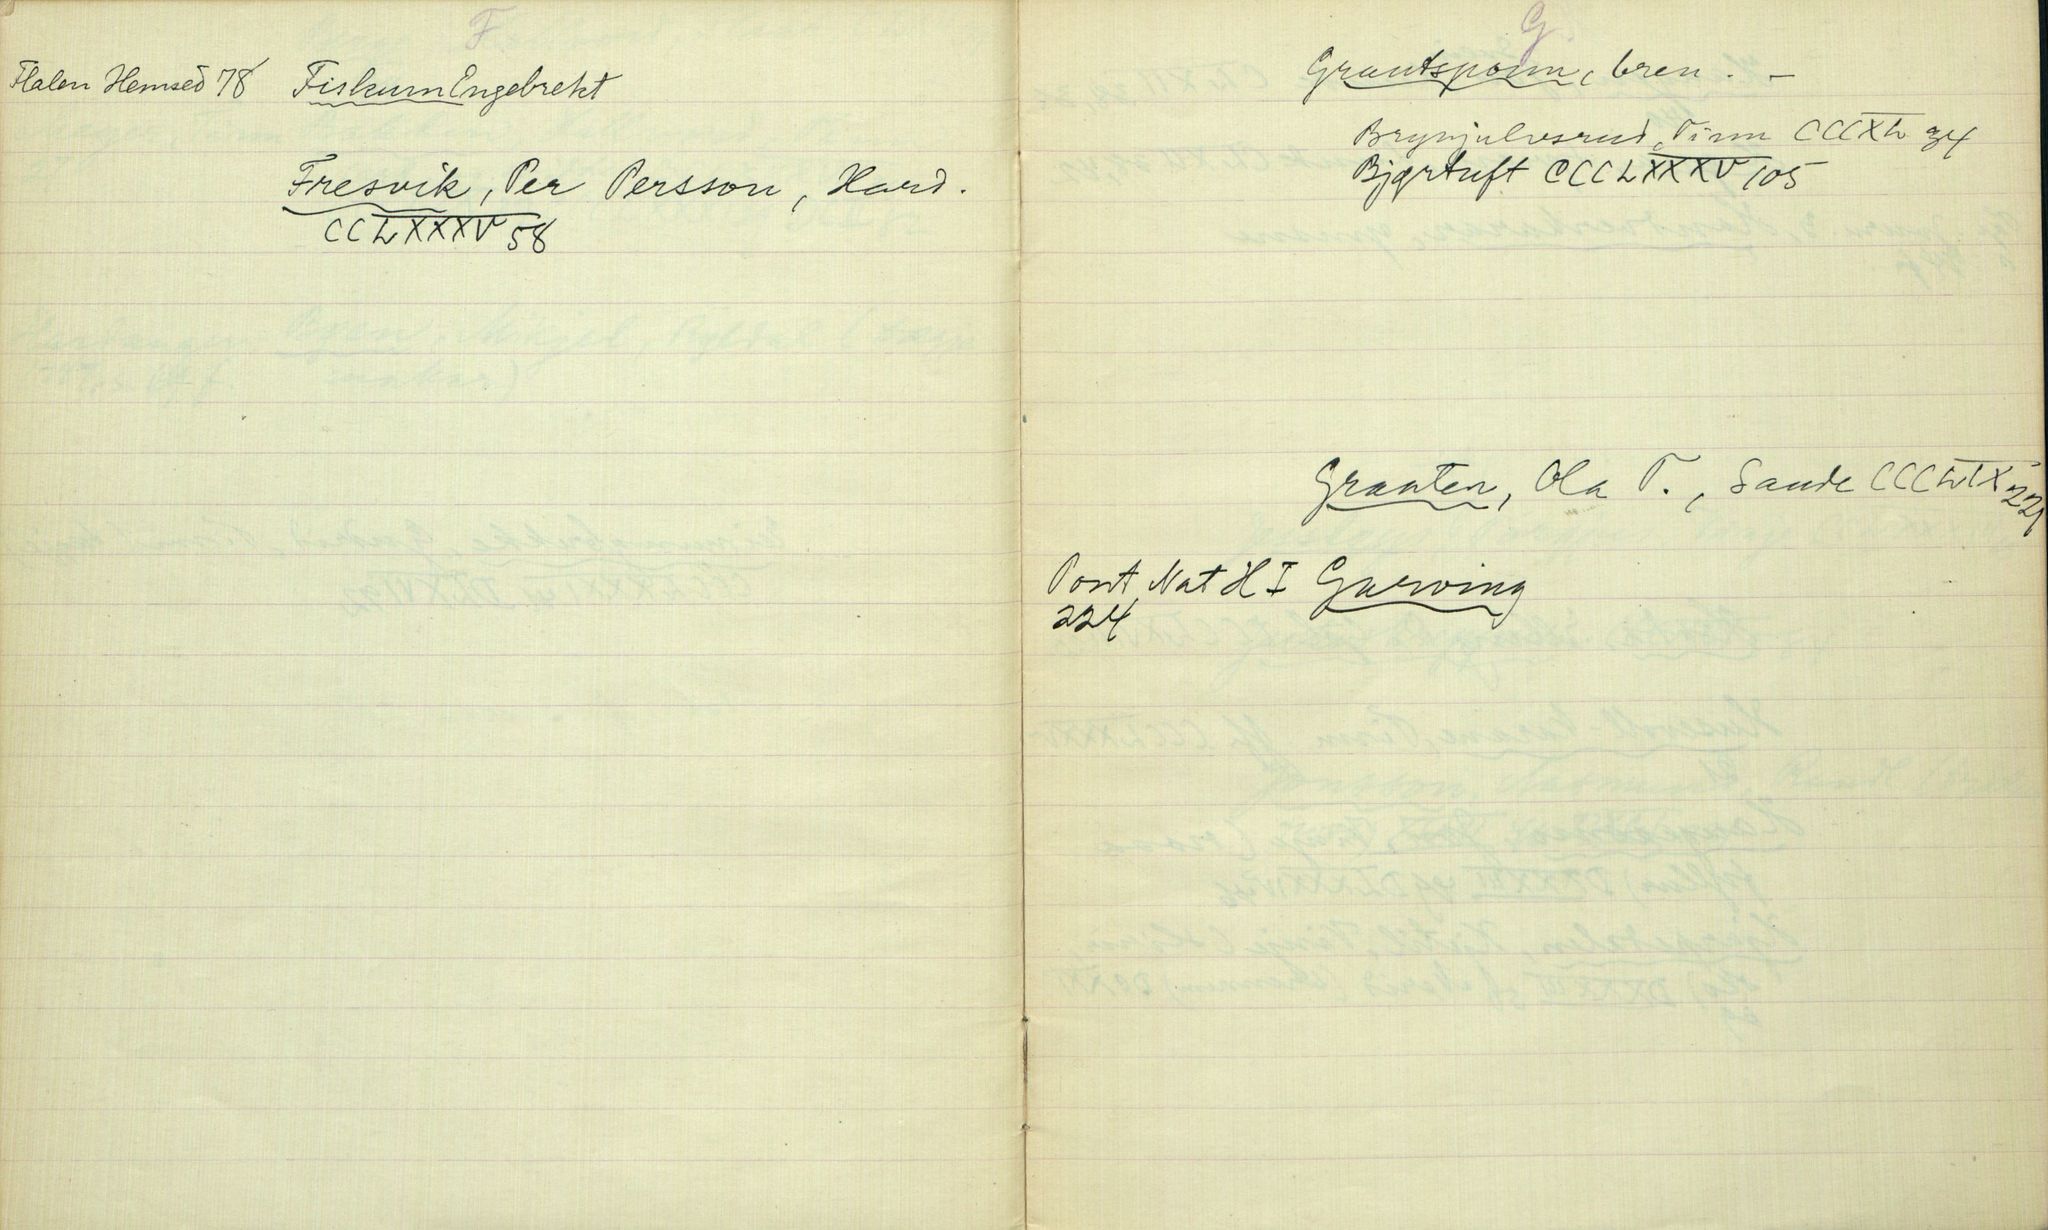 F
Flalen Hemsed 78 Fiskum Engebrekt
Fresvik, Per Persson, Hard.
CCLXXXV 58
G
Grautspoun, bren. –
Brynjulvsrud, Tinn CCCXL 34
Bjørtuft CCCLXXXV 105
Grauten, Ola T., Saude CCCLIX 221
Pont. Nat H I Garving
224